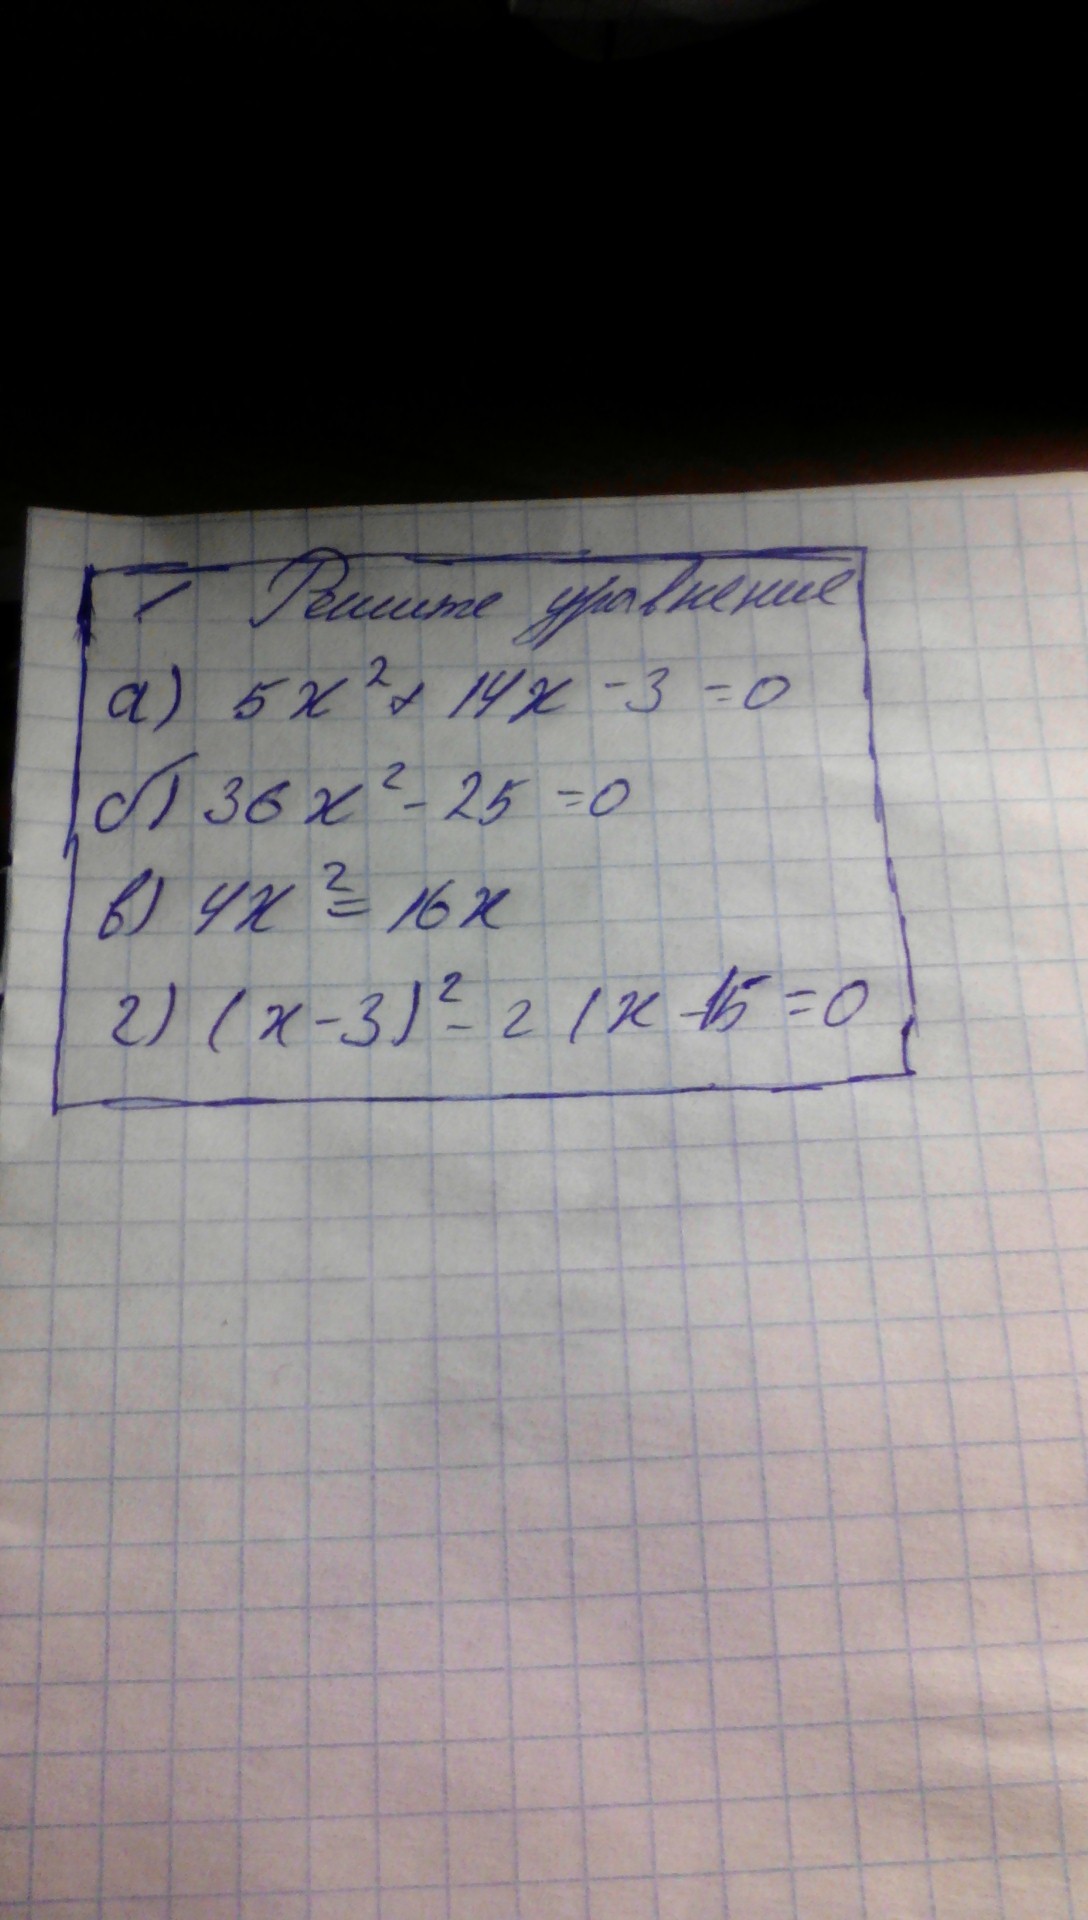 1 Решите уравнение
а) 5x² + 14x - 3 = 0
б) 36x² - 25 = 0
в) 4x² = 16x
г) (x - 3)² - 2 (x - 15 = 0